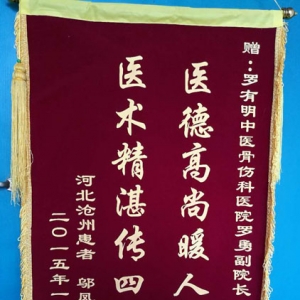 赠：罗有明中医骨伤科医院罗勇副院长
医德高尚暖人
医术精湛传四
河北沧州患者 邬凤
二〇一五年一